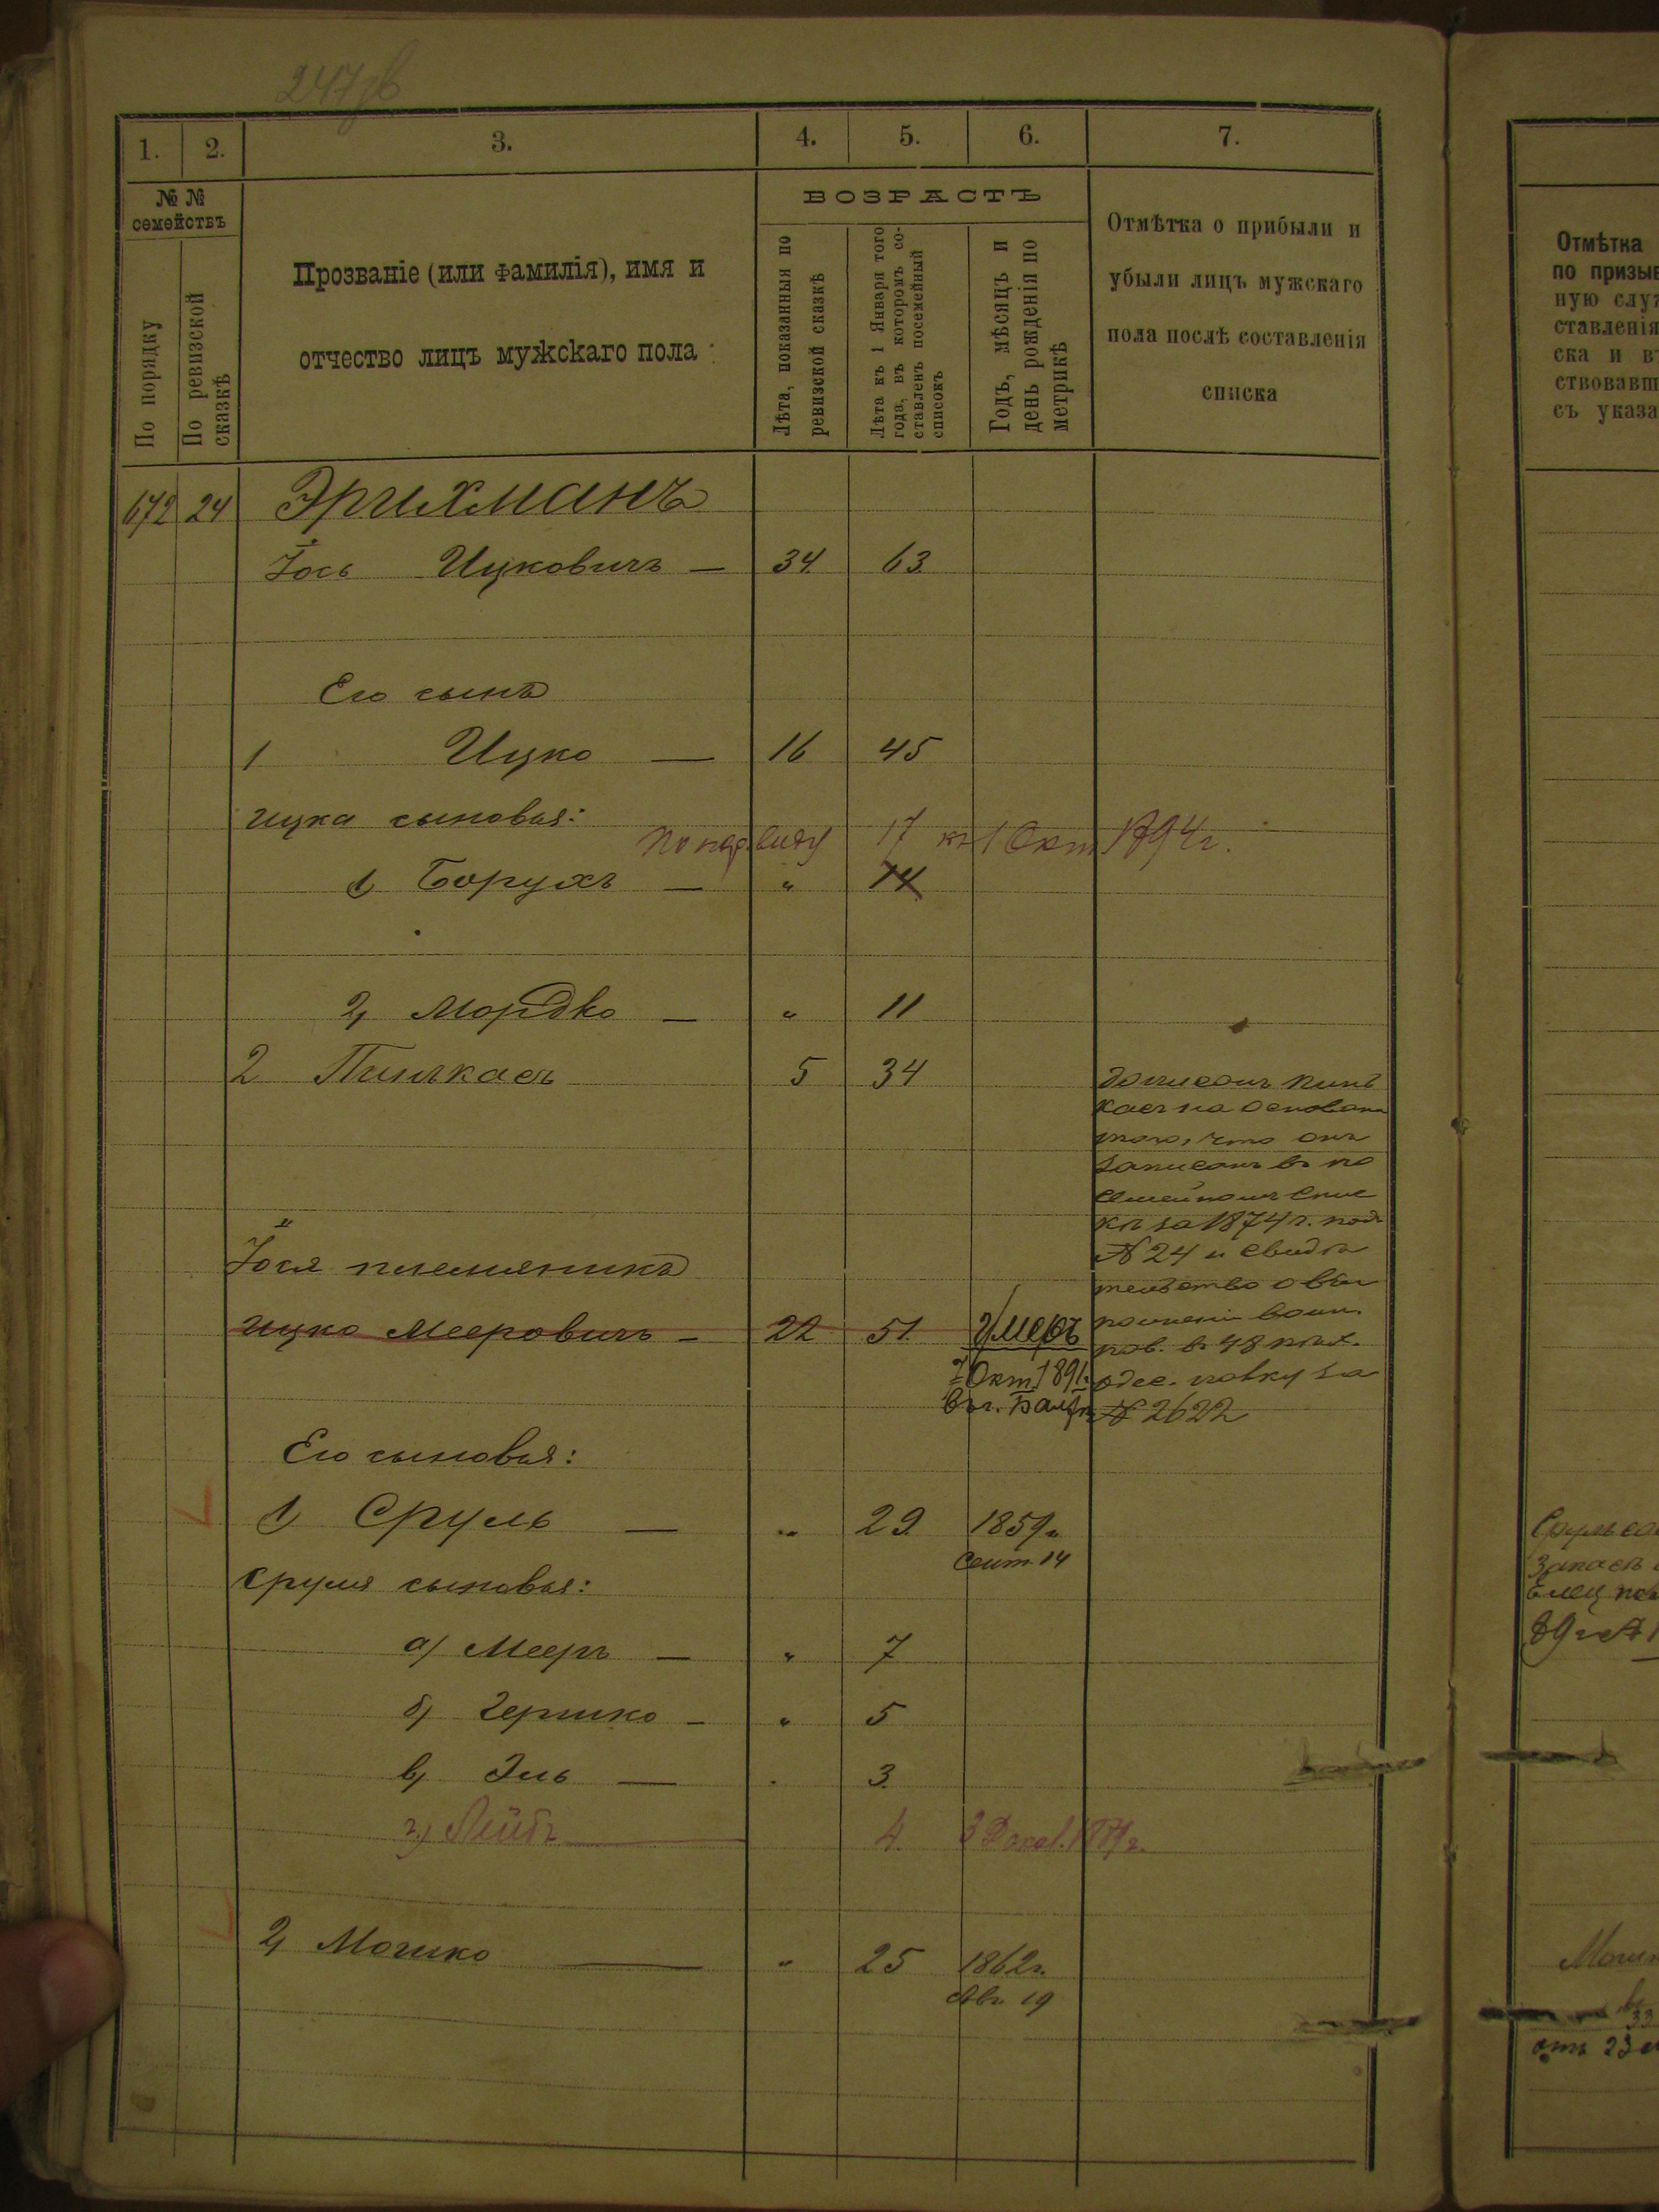 247об
1. 2. 3. 4. 5. 6. 7.
№ №
семействъ
По порядку
По ревизской
сказкѣ
Прозваніе (или фамилія), имя и
отчество лицъ мужскаго пола
ВОЗРАСТЪ
Лѣта, показанныя по
ревизской сказкѣ
Лѣта къ 1 Января того
года, въ которомъ со-
ставленъ посемейный
списокъ
Годъ, мѣсяцъ и
день рожденія по
метрикѣ
Отмѣтка о прибыли и
убыли лицъ мужскаго
пола послѣ составленія
списка
672 24 Эрихманъ
Іось Ицковичъ — 34. 63.
Его сынъ
1 Ицко — 16 45
Ицка сыновья:
По нар. виду 17 къ 1 Окт 1894 г.
1) Борухъ — " 14
2) Мордко — " 11
2 Пинкасъ 5 34
дописанъ Пинь
касъ на основани
того, что онъ
записанъ въ по
семейномъ спис
кѣ за 1874 г. подъ
№ 24 и свидѣ
тельство о вы
полненіи воин.
пов. въ 48 пѣх.
одес. полку за
№ 2622
Іося племянникъ
Ицко Мееровичъ — 22 51. Умеръ
7 Окт. 1891.
въ г. Балтѣ
Его сыновья:
1) Сруль — " 29. 1859 г.
Сент. 14
Сруля сыновья:
а) Мееръ — " 7
б) Гершко — " 5
в) Эль — " 3.
г) Лейбъ — 4. 3
2) Мошко — " 25 1862 г.
Авг. 19
Отмѣтка
по призыв
ную служ
ставленія
ска и въ
ствовавш
съ указа
Сруль
Запасъ
89 г
Мошк
33
отъ 23